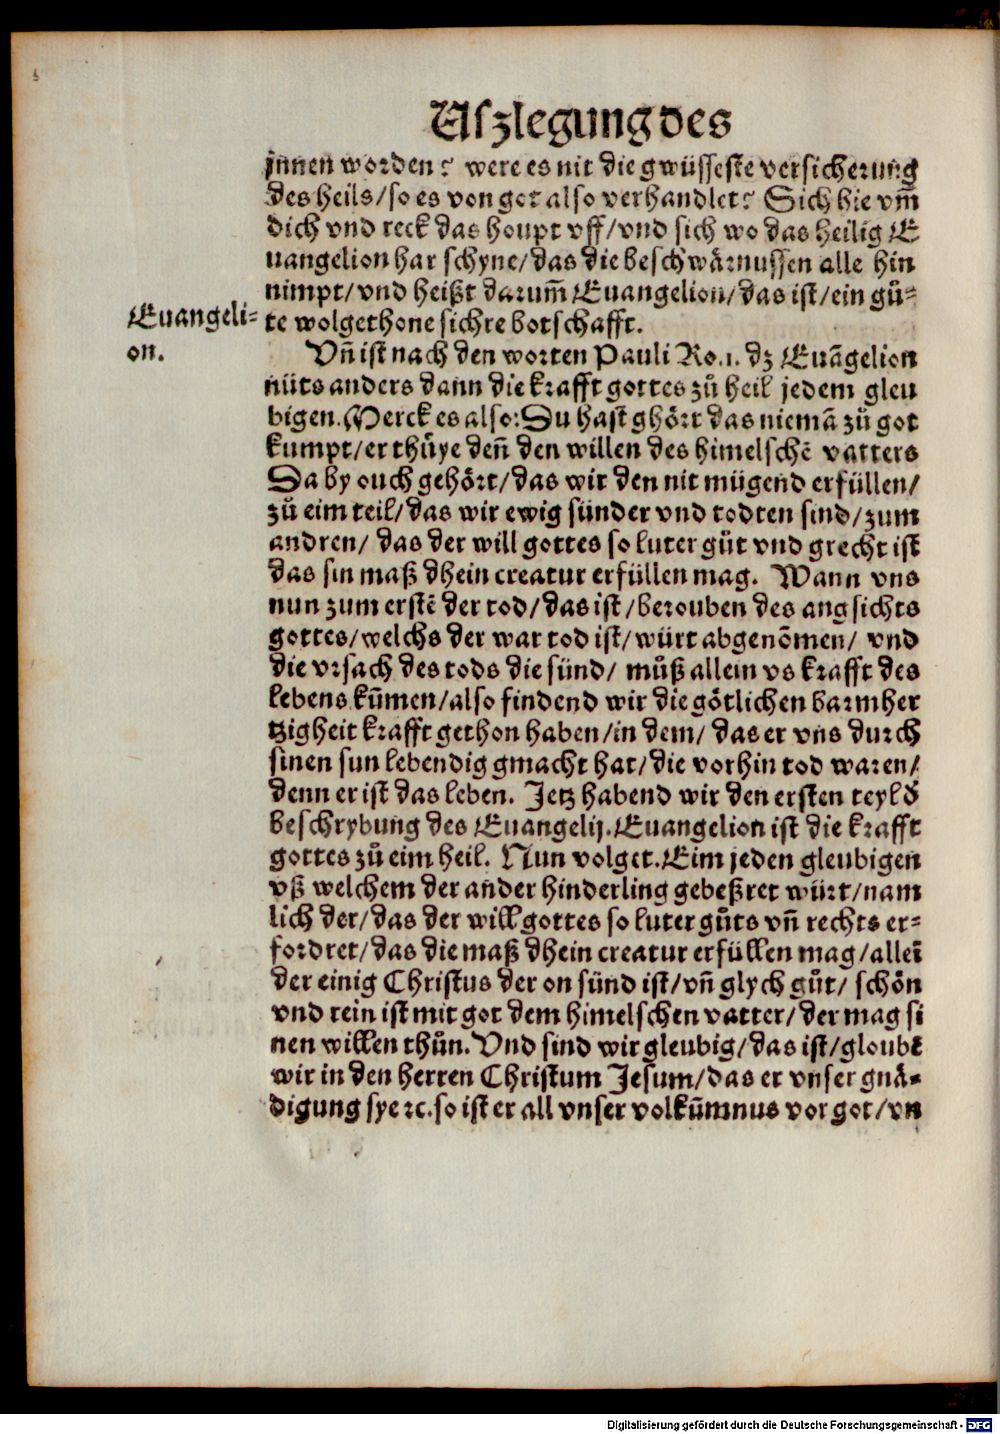 Uſzlegung des
jnnen worden? were es nit die gwüſſeſte verſicherung
des heils/ſo es von got alſo verhandlet? Sich hie vm̄
dich vnd reck das houpt vff/vnd ſich wo das heilig E
uangelion har ſchyne/das die beſchwaͤrnuſſen alle hin
nimpt/vnd heißt darum̄ Euangelion/das iſt/ein guͦ-
te wolgethone ſichre botſchafft.
Euangeli-
on.
Vn̄ iſt nach den worten Pauli Ro.1. dz Euāgelion
nüts anders dann die krafft gottes zuͦ heil jedem gleu
bigen. Merck es alſo: Du haſt ghoͤrt das niemā zuͦ got
kumpt/er thuͤye den̄ den willen des himelſchē vatters
Da by ouch gehoͤrt/das wir den nit mügend erfüllen/
zuͦ eim teil/das wir ewig ſünder vnd todten ſind/zum
andren/ das der will gottes ſo luter guͦt vnd grecht iſt
das ſin maß dhein creatur erfüllen mag. Wann vns
nun zum erſtē der tod/das iſt/berouben des angſichts
gottes/welchs der war tod iſt/würt abgenōmen/ vnd
die vrſach des tods die ſünd/ muͦß allein vs krafft des
lebens kūmen/alſo findend wir die goͤtlichen barmher
tzigheit krafft gethon haben/in dem/ das er vns durch
ſinen ſun lebendig gmacht hat/die vorhin tod waren/
denn er iſt das leben. Jetz habend wir den erſten teyl d̕
beſchrybung des Euangelij. Euangelion iſt die krafft
gottes zuͦ eim heil. Nun volget. Eim jeden gleubigen
vß welchem der ander hinderling gebeßret würt/nam
lich der/das der will gottes ſo luter guͦts vn̄ rechts er-
fordret/das die maß dhein creatur erfüllen mag/alleī
der einig Chriſtus der on ſünd iſt/vn̄ glych guͦt/ ſchoͤn
vnd rein iſt mit got dem himelſchen vatter/der mag ſi
nen willen thuͦn. Vnd ſind wir gleubig/das iſt/gloubē
wir in den herren Chriſtum Jeſum/das er vnſer gnaͤ-
digung ſye ꝛc. ſo iſt er all vnſer volkūmnus vor got/vn
Digitalisierung gefördert durch die Deutsche Forschungsgemeinschaft - DFG